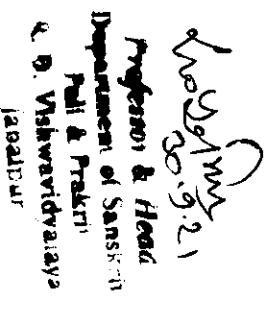 30.9.21
Professor & Head
Department of Sanskrit
Pali & Prakrit
R. D. Vishwavidyalaya
Jabalpur